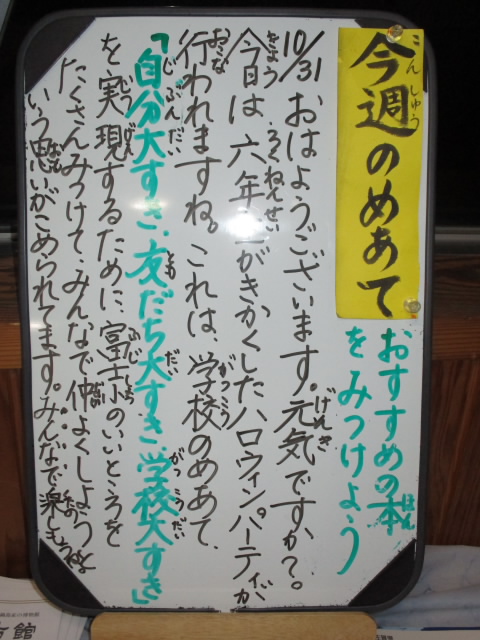 今週のめあて
おすすめの本
をみつけよう
10/31 おはようございます。元気ですか?。
今日は、六年生がきかくしたハロウィンパーティが
行われますね。これは、学校のめあて、
「自分大すき、友だち大すき、学校大すき」
を実現するために、富士小のいいところを
たくさんみつけて、みんなで仲よくしようと
いう思いがこめられてます。みんなで楽しもうね